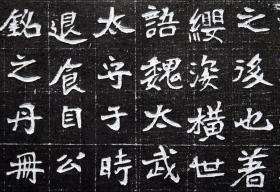 之後也著
纓渙橫世
語魏太武
太守于時
退食自公
銘之丹冊